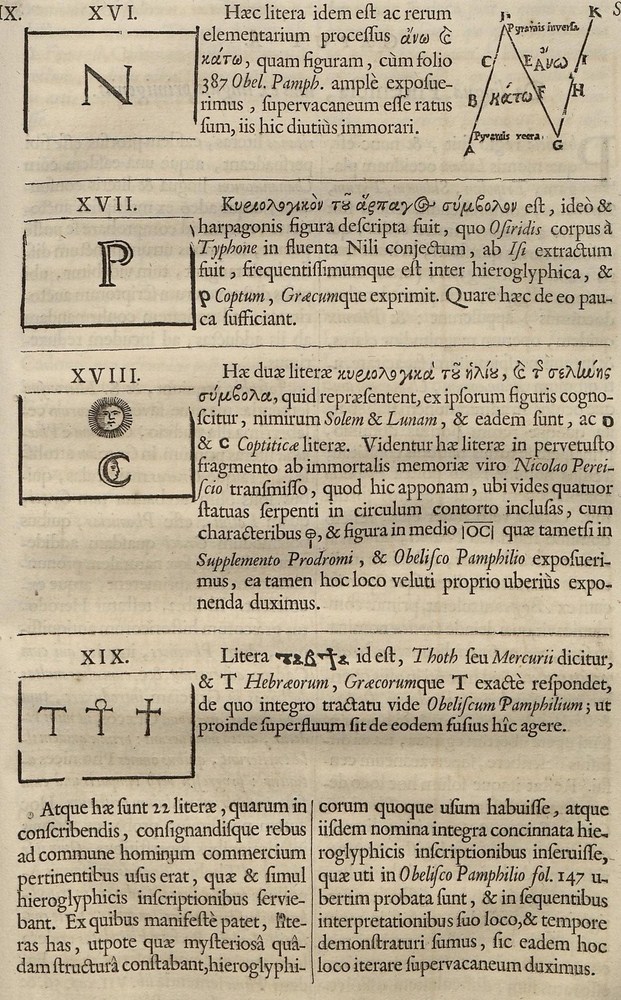 IX.
XVI.
N
Hæc litera idem eſt ac rerum
elementarium proceſſus ἄνω &
κάτω, quam figuram, cùm folio
387 Obel. Pamph. amplè expoſue-
rimus, ſupervacaneum eſſe ratus
ſum, iis hic diutiùs immorari.
K
S
Pyramis inverſa.
C
E
ἄνω
I
B
κάτω
F
H
Pyramis recta.
A
G
XVII.
P
Κυριολογικὸν τȣ͂ ἅρπαγ⊕ σύμβολον eſt, ideò &
harpagonis figura deſcripta fuit, quo Oſiridis corpus à
Typhone in fluenta Nili conjectum, ab Iſi extractum
fuit, frequentiſſimumque eſt inter hieroglyphica, &
ⲣ Coptum, Græcumque exprimit. Quare hæc de eo pau-
ca ſufficiant.
XVIII.
Hæ duæ literæ κυριολογικὰ τȣ͂ ἡλίȣ, & τ͂ σελήνης
σύμβολα, quid repræſentent, ex ipſorum figuris cogno-
ſcitur, nimirum Solem & Lunam, & eadem ſunt, ac ⲟ
& ⲥ Coptiticæ literæ. Videntur hæ literæ in pervetuſto
fragmento ab immortalis memoriæ viro Nicolao Perei-
ſcio tranſmiſſo, quod hic apponam, ubi vides quatuor
ſtatuas ſerpenti in circulum contorto incluſas, cum
characteribus , & figura in medio |OC| quæ tametſi in
Supplemento Prodromi, & Obeliſco Pamphilio expoſueri-
mus, ea tamen hoc loco veluti proprio uberiùs expo-
nenda duximus.
XIX.
T ☥ ✝
Litera id eſt, Thoth ſeu Mercurii dicitur,
& T Hebræorum, Græcorumque T exactè reſpondet,
de quo integro tractatu vide Obeliſcum Pamphilium; ut
proinde ſuperfluum ſit de eodem fuſius hîc agere.
Atque hæ ſunt 22 literæ, quarum in
conſcribendis, conſignandiſque rebus
ad commune hominum commercium
pertinentibus uſus erat, quæ & ſimul
hieroglyphicis inſcriptionibus ſervie-
bant. Ex quibus manifeſtè patet, lite-
ras has, utpote quæ myſterioſâ quâ-
dam ſtructurâ conſtabant, hieroglyphi-
corum quoque uſum habuiſſe, atque
iiſdem nomina integra concinnata hie-
roglyphicis inſcriptionibus inſeruiſſe,
quæ uti in Obeliſco Pamphilio fol. 147 u-
bertim probata ſunt, & in ſequentibus
interpretationibus ſuo loco, & tempore
demonſtraturi ſumus, ſic eadem hoc
loco iterare ſupervacaneum duximus.